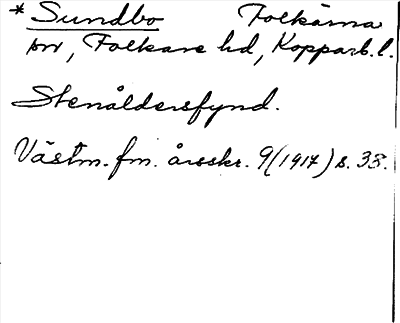 * Sundbo Folkärna
sn, Folkare hd, Kopparb. l.
Stenåldersfynd.
Västm. fm. årsskr. 9 (1917) s. 38.